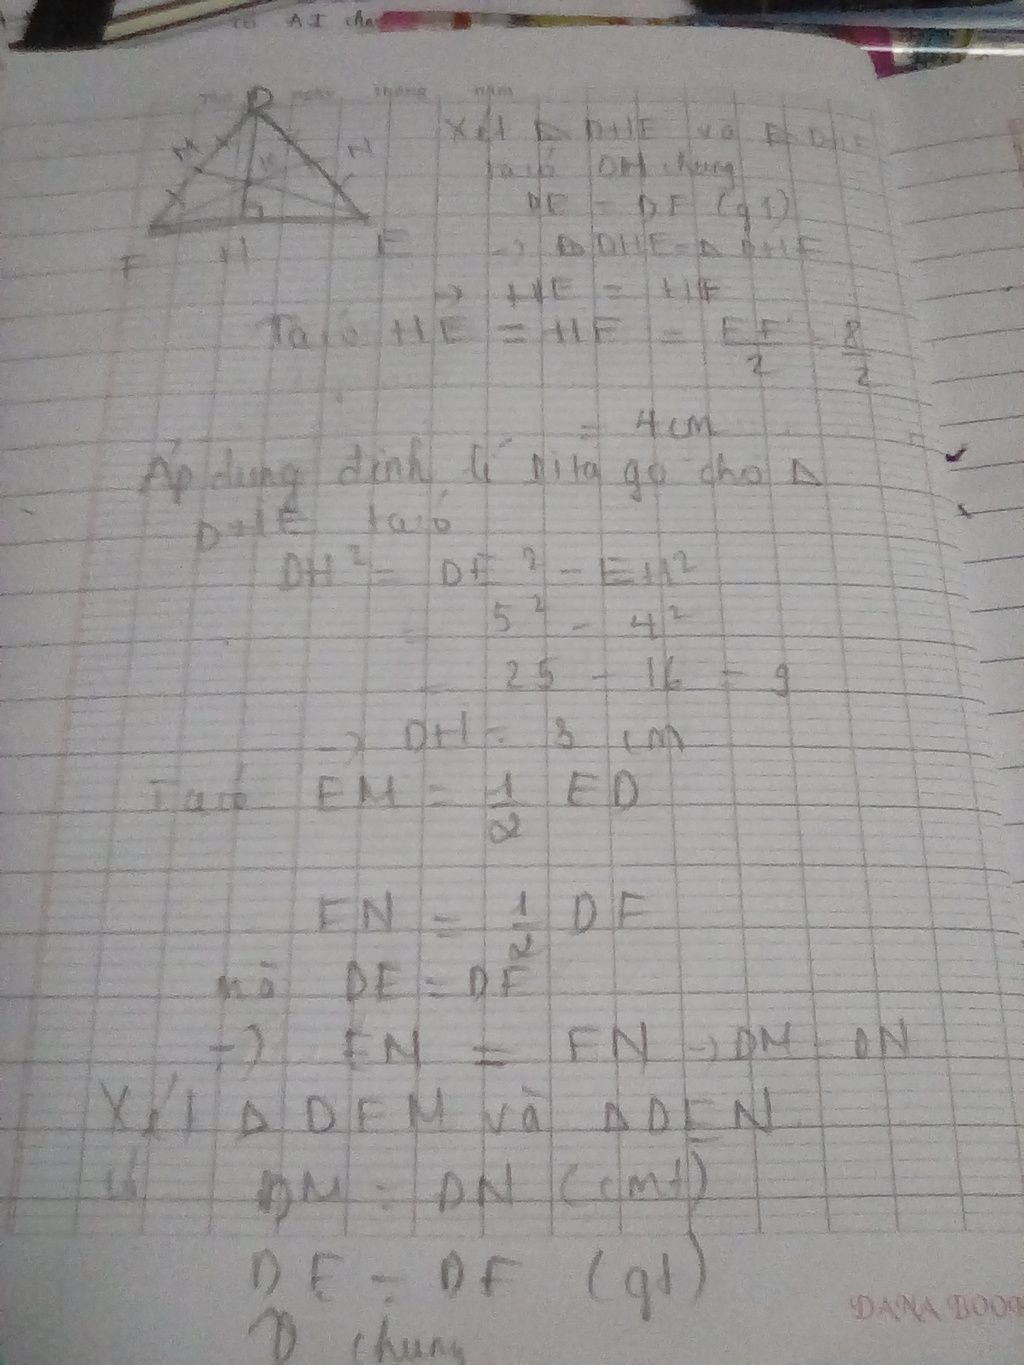 A I
ngày tháng năm
D
M N
K
F H E
Xét Δ DHE và Δ DHF
ta có DH chung
DE = DF (gt)
→ Δ DHE = Δ DHF
→ HE = HF
Ta có HE = HF = EF/2 = 8/2
= 4cm
Áp dụng định lí pitago cho Δ
DHE ta có
DH² = DE² - EH²
= 5² - 4²
= 25 - 16 = 9
→ DH = 3 cm
Ta có EM = 1/2 ED
FN = 1/2 DF
mà DE = DF
→ EN = FN → DM = DN
Xét Δ DFM và Δ DEN
có DM = DN (cmt)
DE = DF (gt)
D chung
DANA BOOK